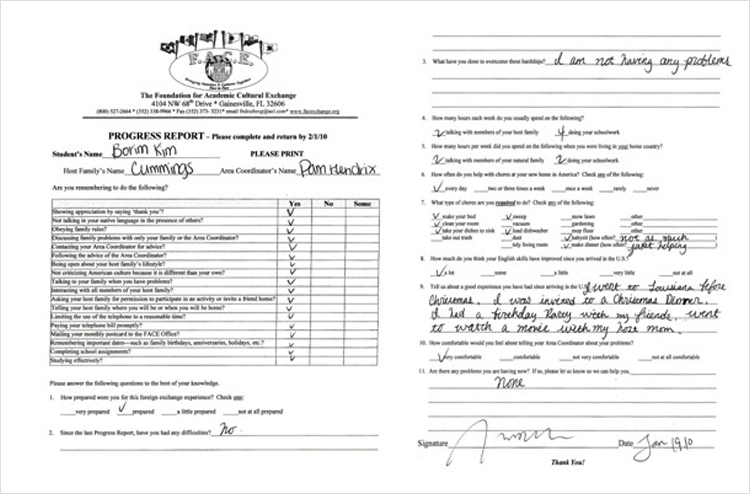 F.A.C.E.
Bringing Families & Cultures Together
Face to Face
The Foundation for Academic Cultural Exchange
4104 NW 68th Drive * Gainesville, FL 32606
(800) 527-2664 * (352) 338-9966 * Fax (352) 373- 5231* email * www.faceexchange.org
PROGRESS REPORT – Please complete and return by 2/1/10
Student's Name Borim Kim PLEASE PRINT
Host Family's Name Cummings Area Coordinator's Name Pam Hendrix
Are you remembering to do the following?
Yes No Some
Showing appreciation by saying 'thank you'?
Not talking in your native language in the presence of others?
Obeying family rules?
Discussing family problems with only your family or the Area Coordinator?
Contacting your Area Coordinator for advice?
Following the advice of the Area Coordinator?
Being open about your host family's lifestyle?
Not criticizing American culture because it is different than your own?
Talking to your family when you have problems?
Interacting with all members of your host family?
Asking your host family for permission to participate in an activity or invite a friend home?
Telling your host family where you will be or when you will be home?
Limiting the use of the telephone to a reasonable time?
Paying your telephone bill promptly?
Mailing your monthly postcard to the FACE Office?
Remembering important dates—such as family birthdays, anniversaries, holidays, etc.?
Completing school assignments?
Studying effectively?
Please answer the following questions to the best of your knowledge.
1. How prepared were you for this foreign exchange experience? Check one:
very prepared prepared a little prepared not at all prepared
2. Since the last Progress Report, have you had any difficulties? No.
3. What have you done to overcome these hardships? I am not having any problems
4. How many hours each week do you usually spend on the following?
talking with members of your host family 4 doing your schoolwork
5. How many hours per week did you spend on the following when you were living in your home country?
2 talking with members of your natural family 2 doing your schoolwork
6. How often do you help with chores at your new home in America? Check one of the following:
every day two or three times a week once a week rarely never
7. What type of chores are you required to do? Check any of the following:
make your bed sweep mow lawn other
clean your room vacuum gardening other
take your dishes to sink load dishwasher mop floor other
take out trash dust babysit (how often? not as much
tidy living room make dinner (how often? just helping
8. How much do you think your English skills have improved since you arrived in the U.S.?
a lot some a little very little not at all
9. Tell us about a good experience you have had since arriving in the U.S. I went to Louisiana before
Christmas. I was invited to a Christmas Dinner.
I had a birthday Party with my friends. went
to watch a movie with my host mom.
10. How comfortable would you feel about telling your Area Coordinator about your problems?
very comfortable comfortable not very comfortable not at all comfortable
11. Are there any problems you are having now? If so, please let us know so we can help you.
None
Signature Date Jan 19,10
Thank You!